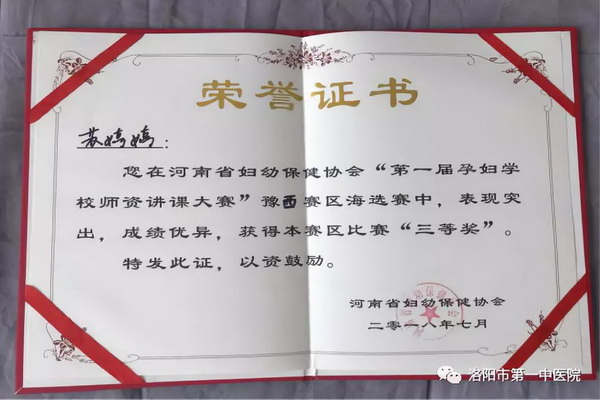 荣誉证书
苏婷婷：
您在河南省妇幼保健协会“第一届孕妇学
校师资讲课大赛”豫西赛区海选赛中，表现突
出，成绩优异，获得本赛区比赛“三等奖”。
特发此证，以资鼓励。
河南省妇幼保健协会
二零一八年七月
洛阳市第一中医院